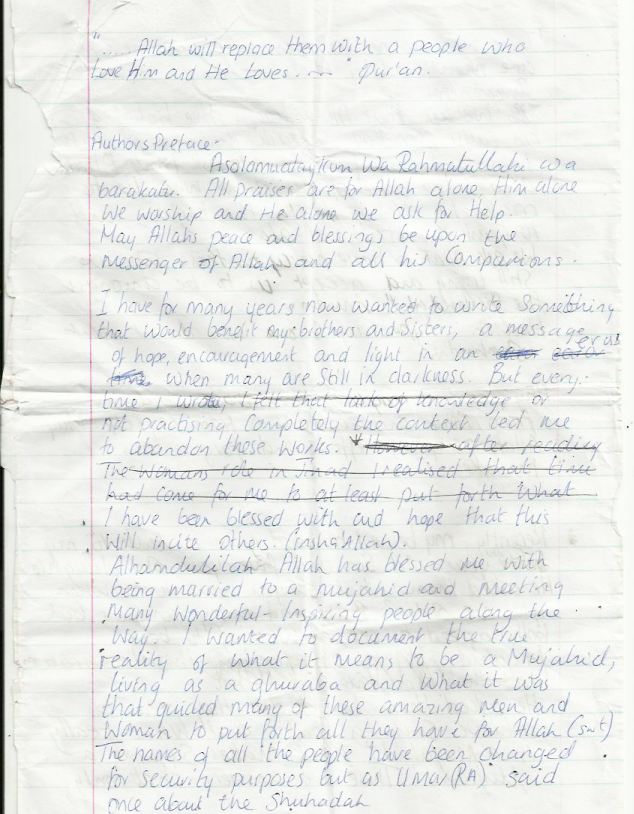 "..... Allah will replace them with a people who
Love Him and He Loves. ~ " Qur'an.
Authors Preface-
Asalamuataykum Wa Rahmatullahi wa
barakatu. All praises are for Allah alone, Him alone
We worship and He alone we ask for Help.
May Allahs peace and blessings be upon the
Messenger of Allah and all his Companions.
I have for many years now wanted to write Something
that would benefit my brothers and Sisters, a message
of hope, encouragement and light in an era
when many are Still in darkness. But every
time I wrote, I felt that lack of knowledge or
not practising Completely the context led me
to abandon these works. However after reading
The womans role in Jihad I realised that time
had come for me to at least put forth what
I have been blessed with and hope that this
Will incite others. (insha'Allah).
Alhamdulilah Allah has blessed me with
being married to a mujahid and meeting
Many Wonderful-Inspiring people along the
Way. I wanted to document the true
reality of what it means to be a Mujahid,
living as a ghuraba and what it was
that guided many of these amazing Men and
Woman to put forth all they have for Allah (swt)
The names of all the people have been changed
for security purposes but as Umar (RA) said
once about the Shuhadah